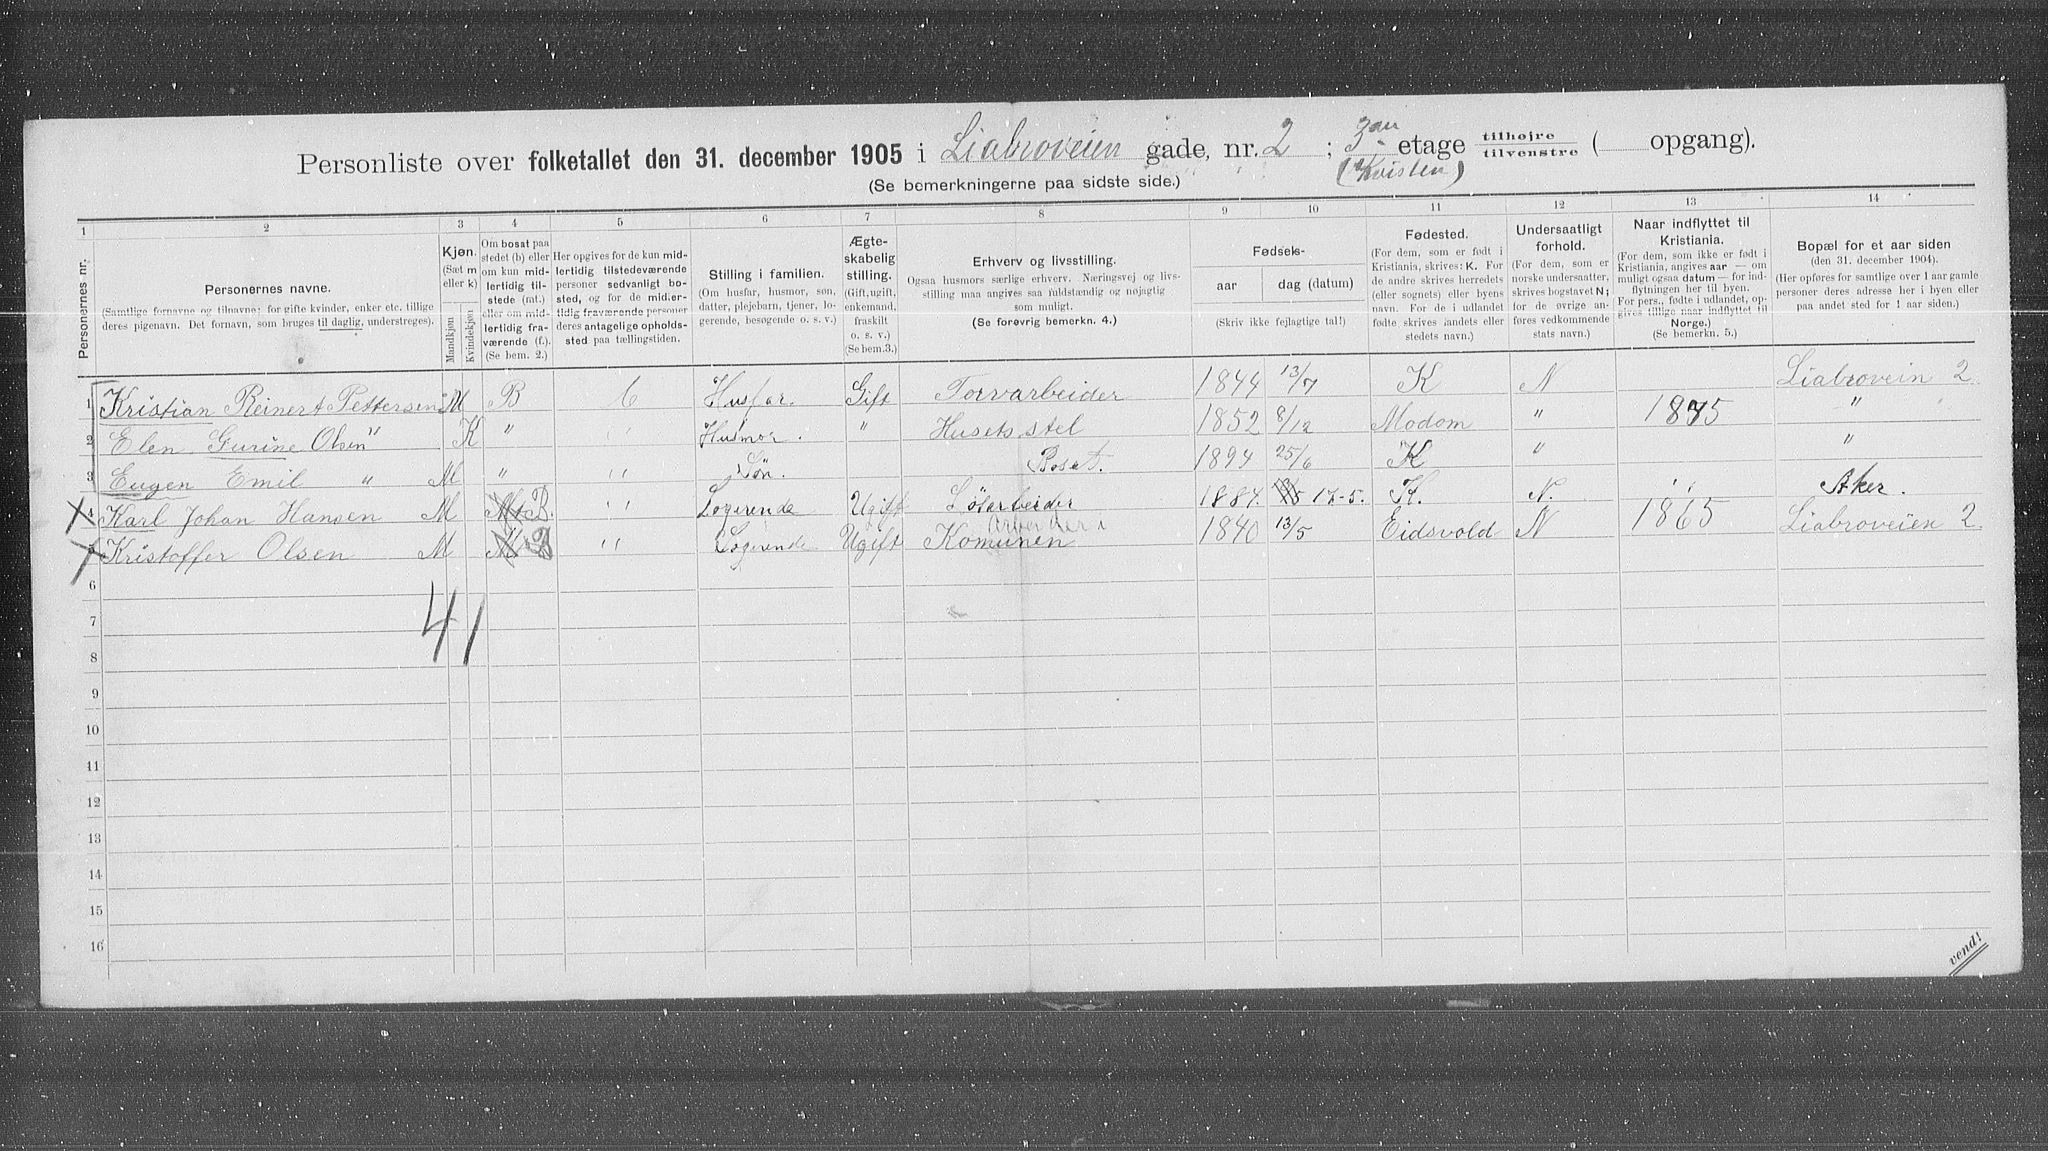 Personliste over folketallet den 31. december 1905 i Liabroveien gade, nr. 2 ; 3 etage tilhøjre tilvenstre ( opgang).
(Kvisten)
(Se bemerkningerne paa sidste side.)
1 2 3 4 5 6 7 8 9 10 11 12 13 14
Personernes nr.
Personernes navne.
(Samtlige fornavne og tilnavne; for gifte kvinder, enker etc. tillige
deres pigenavn. Det fornavn, som bruges til daglig, understreges).
Kjøn.
(Sæt m
eller k)
Mandkjøn
Kvindekjøn
Om bosat paa
stedet (b) eller
om kun mid-
lertidig til-
stede (mt.)
eller om mid-
lertidig fra-
værende (f.).
(Se bem. 2.)
Her opgives for de kun mid-
lertidig tilstedeværende
personer sedvanlig bo-
sted, og for de midler-
tidig fraværende personer
deres antagelige opholds-
sted paa tællingstiden.
Stilling i familien.
(Om husfar, husmor, søn,
datter, plejebarn, tjener, lo-
gerende, besøgende o. s. v.)
Ægte-
skabelig
stilling.
(Gift, ugift,
enkemand,
fraskilt
o. s. v.)
(Se bem. 3.)
Erhverv og livsstilling.
Ogsaa husmors særlige erhverv. Næringsvej og livs-
stilling maa angives saa fuldstændig og nøjagtig
som muligt.
(Se forøvrig bemerkn. 4.)
Fødsels-
aar dag (datum)
(Skriv ikke fejlagtige tal!)
Fødested.
(For dem, som er født i
Kristiania, skrives: K. For
de andre skrives herredets
(eller sognets) eller byens
navn. For de i udlandet
fødte skrives landets eller
stedets navn.)
Undersaatligt
forhold.
(For dem, som er
norske undersaatter,
skrives bogstavet N;
for de øvrige an-
føres vedkommende
stats navn.)
Naar indflyttet til
Kristiania.
(For dem, som ikke er født i
Kristiania, angives aar — om
muligt ogsaa datum — for ind-
flytningen her til byen.
For pers., fødte i udlandet, op-
gives tillige naar indflyttet til
Norge.)
(Se bemerkn. 5.)
Bopæl for et aar siden
(den 31. december 1904).
(Her opføres for samtlige over 1 aar gamle
personer deres adresse her i byen eller
paa andet sted for 1 aar siden.)
1 Kristian Reinert Pettersen M B Husfar. Gift Torvarbeider 1844 13/7 K N Liabrovein 2
2 Elen Gurine Olsen " K " Husmor. " Husets stel 1852 8/12 Modom " 1875 "
3 Eugen Emil " M " Søn. Post. 1894 25/6 K " "
4 Karl Johan Hansen M B. Logerende Ugift Løsarbeider 1887. 17-5. K. N. Aker.
Arbeider i
5 Kristoffer Olsen M B Logerende Ugift Komunen 1840 13/5 Eidsvold N 1865 Liabroveien 2
6
7
41
8
9
10
11
12
13
14
15
16
vend!